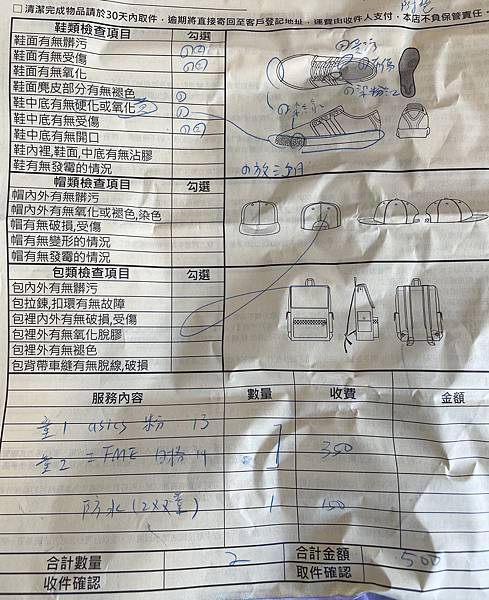 □ 清潔完成物品請於30天內取件，逾期將直接寄回至客戶登記地址，運費由收件人支付，本店不負保管責任。
鞋類檢查項目 勾選
鞋面有無髒污
鞋面有無受傷
鞋面有無氧化
鞋面麂皮部分有無褪色
鞋中底有無硬化或氧化
鞋中底有無受傷
鞋中底有無開口
鞋內裡,鞋面,中底有無沾膠
鞋有無發霉的情況
帽類檢查項目 勾選
帽內外有無髒污
帽內外有無氧化或褪色,染色
帽有無破損,受傷
帽有無變形的情況
帽有無發霉的情況
包類檢查項目 勾選
包內外有無髒污
包拉鍊,扣環有無故障
包裡內外有無破損,受傷
包裡外有無氧化脫膠
包裡外有無褪色
包背帶車縫有無脫線,破損
服務內容 數量 收費 金額
童1 asics 粉 13
童2 FME 14
350
防水(2雙童) 1 150
合計數量 2 合計金額 500
收件確認 取件確認